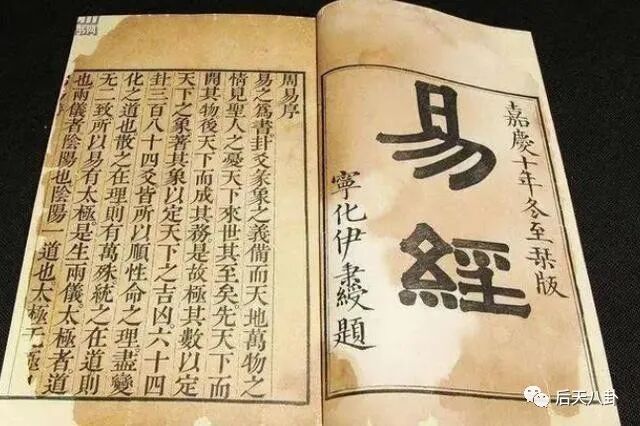 嘉慶十年冬至栞版
易經
寧化伊秉綬題
周易序
易之爲書卦爻彖象之義備而天地萬物之
情見聖人之憂天下來世其至矣先天下而
開其物後天下而成其務是故極其數以定
天下之象著其象以定天下之吉凶六十四
卦三百八十四爻皆所以順性命之理盡變
化之道也散之在理則有萬殊統之在道則
无二致所以易有太極是生兩儀太極者道
也兩儀者陰陽也陰陽一道也太極无極
后天八卦